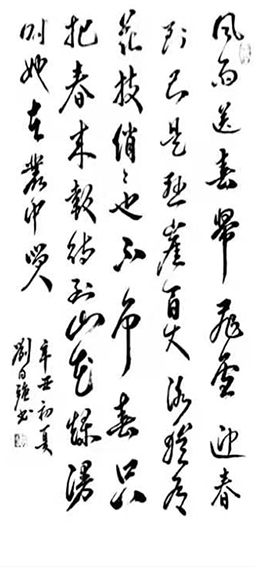 風雨送春歸飛雪迎春
到已是悬崖百丈冰猶有
花枝俏〻也不争春只
把春来報待到山花爛漫
时她在叢中笑
辛丑初夏
劉日強书